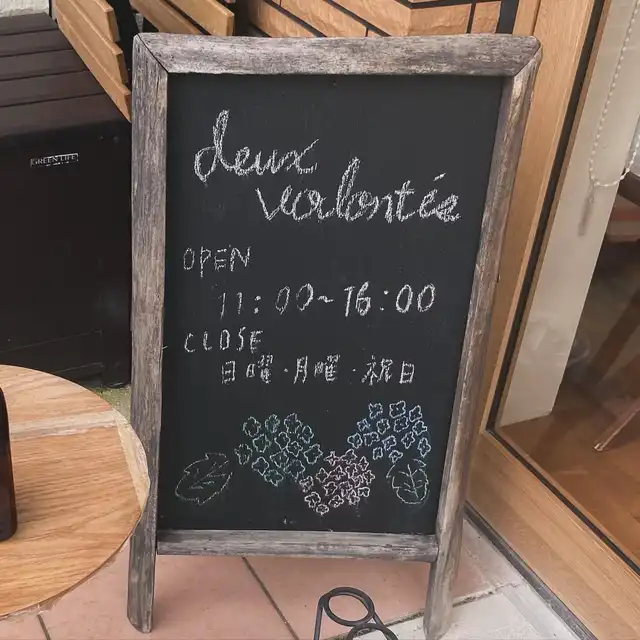 GREEN LIFE
deux
volontés
OPEN
11:00~16:00
CLOSE
日曜・月曜・祝日